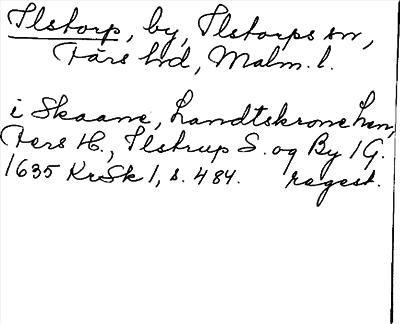 Ilstorp, by, Ilstorps sn,
Färs hd, Malm. l.
i Skaane, Landtskrone Len,
Fers H., Ilstrup S. og By 1 G.
1635 KrSk 1, s. 484. regest.